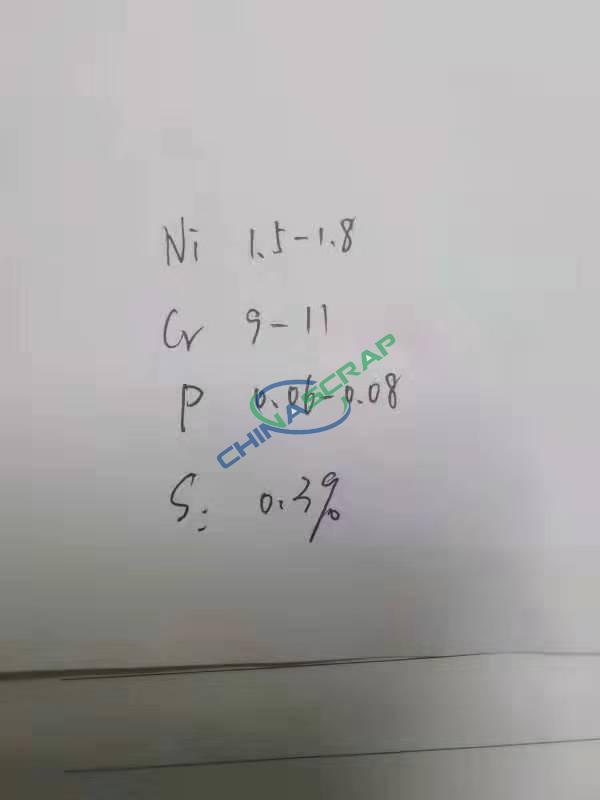 Ni 1.5-1.8
Cr 9-11
P 0.06-0.08
S: 0.3%
CHINASCRAP